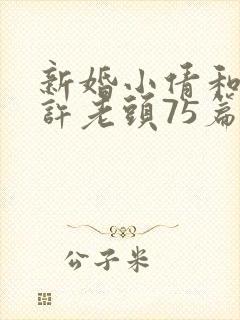 新婚小倩和
許老頭75篇
公子米